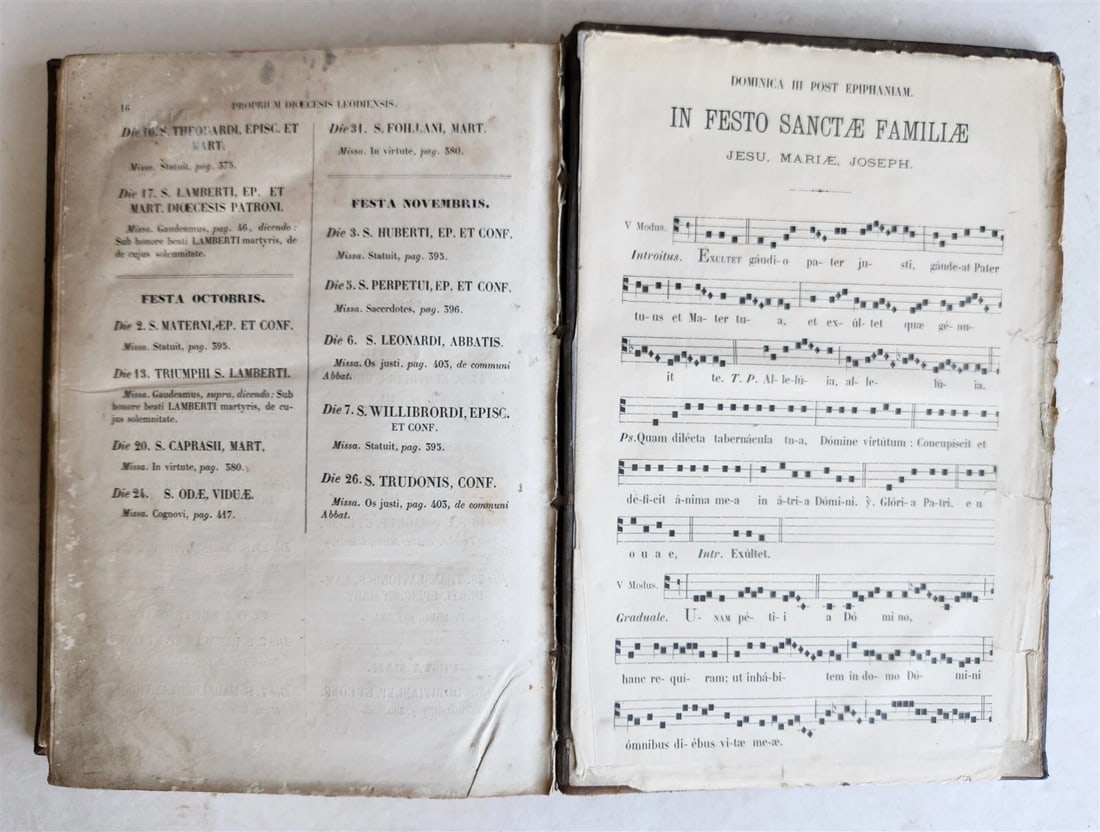 16 PROPRIUM DIŒCESIS LEODIENSIS.
Die 10. S. THEODARDI, EPISC. ET
MART.
Missa. Statuit, pag. 375.
Die 17. S. LAMBERTI, EP. ET
MART. DIŒCESIS PATRONI.
Missa. Gaudeamus, pag. 46, dicendo:
Sub honore beati LAMBERTI martyris, de
de cujus solemnitate.
FESTA OCTOBRIS.
Die 2. S. MATERNI, EP. ET CONF.
Missa. Statuit, pag. 395.
Die 13. TRIUMPHI S. LAMBERTI.
Missa. Gaudeamus, supra, dicendo: Sub
honore beati LAMBERTI martyris, de cu-
jus solemnitate.
Die 20. S. CAPRASII, MART.
Missa. In virtute, pag. 380.
Die 24. S. ODÆ, VIDUÆ.
Missa. Cognovi, pag. 417.
Die 31. S. FOILLANI, MART.
Missa. In virtute, pag. 380.
FESTA NOVEMBRIS.
Die 3. S. HUBERTI, EP. ET CONF.
Missa. Statuit, pag. 395.
Die 5. S. PERPETUI, EP. ET CONF.
Missa. Sacerdotes, pag. 396.
Die 6. S. LEONARDI, ABBATIS.
Missa. Os justi, pag. 403, de communi
Abbat.
Die 7. S. WILLIBRORDI, EPISC.
ET CONF.
Missa. Statuit, pag. 395.
Die 26. S. TRUDONIS, CONF.
Missa. Os justi, pag. 403, de communi
Abbat.
DOMINICA III POST EPIPHANIAM.
IN FESTO SANCTÆ FAMILIÆ
JESU, MARIÆ, JOSEPH.
V Modus.
Introitus. EXULTET gáudi-o pa- ter ju- sti, gáude-at Pater
tu- us et Ma- ter tu- a, et ex- úl- tet quæ gé- nu-
it te. T. P. Al- le-lú- ia, al- le- lú- ia.
Ps. Quam dilécta tabernácula tu-a, Dómine virtútum : Concupíscit et
dé-fi-cit á-nima me-a in á-tri-a Dómi-ni. ℣. Glóri-a Pa-tri. e u
o u a e, Intr. Exúltet.
V Modus.
Graduale. U- NAM pé- ti- i a Dó mi no,
hanc re- quí- ram; ut inhá-bi- tem in do- mo Dó- mi-ni
ómnibus di- ébus vi-tæ me-æ.